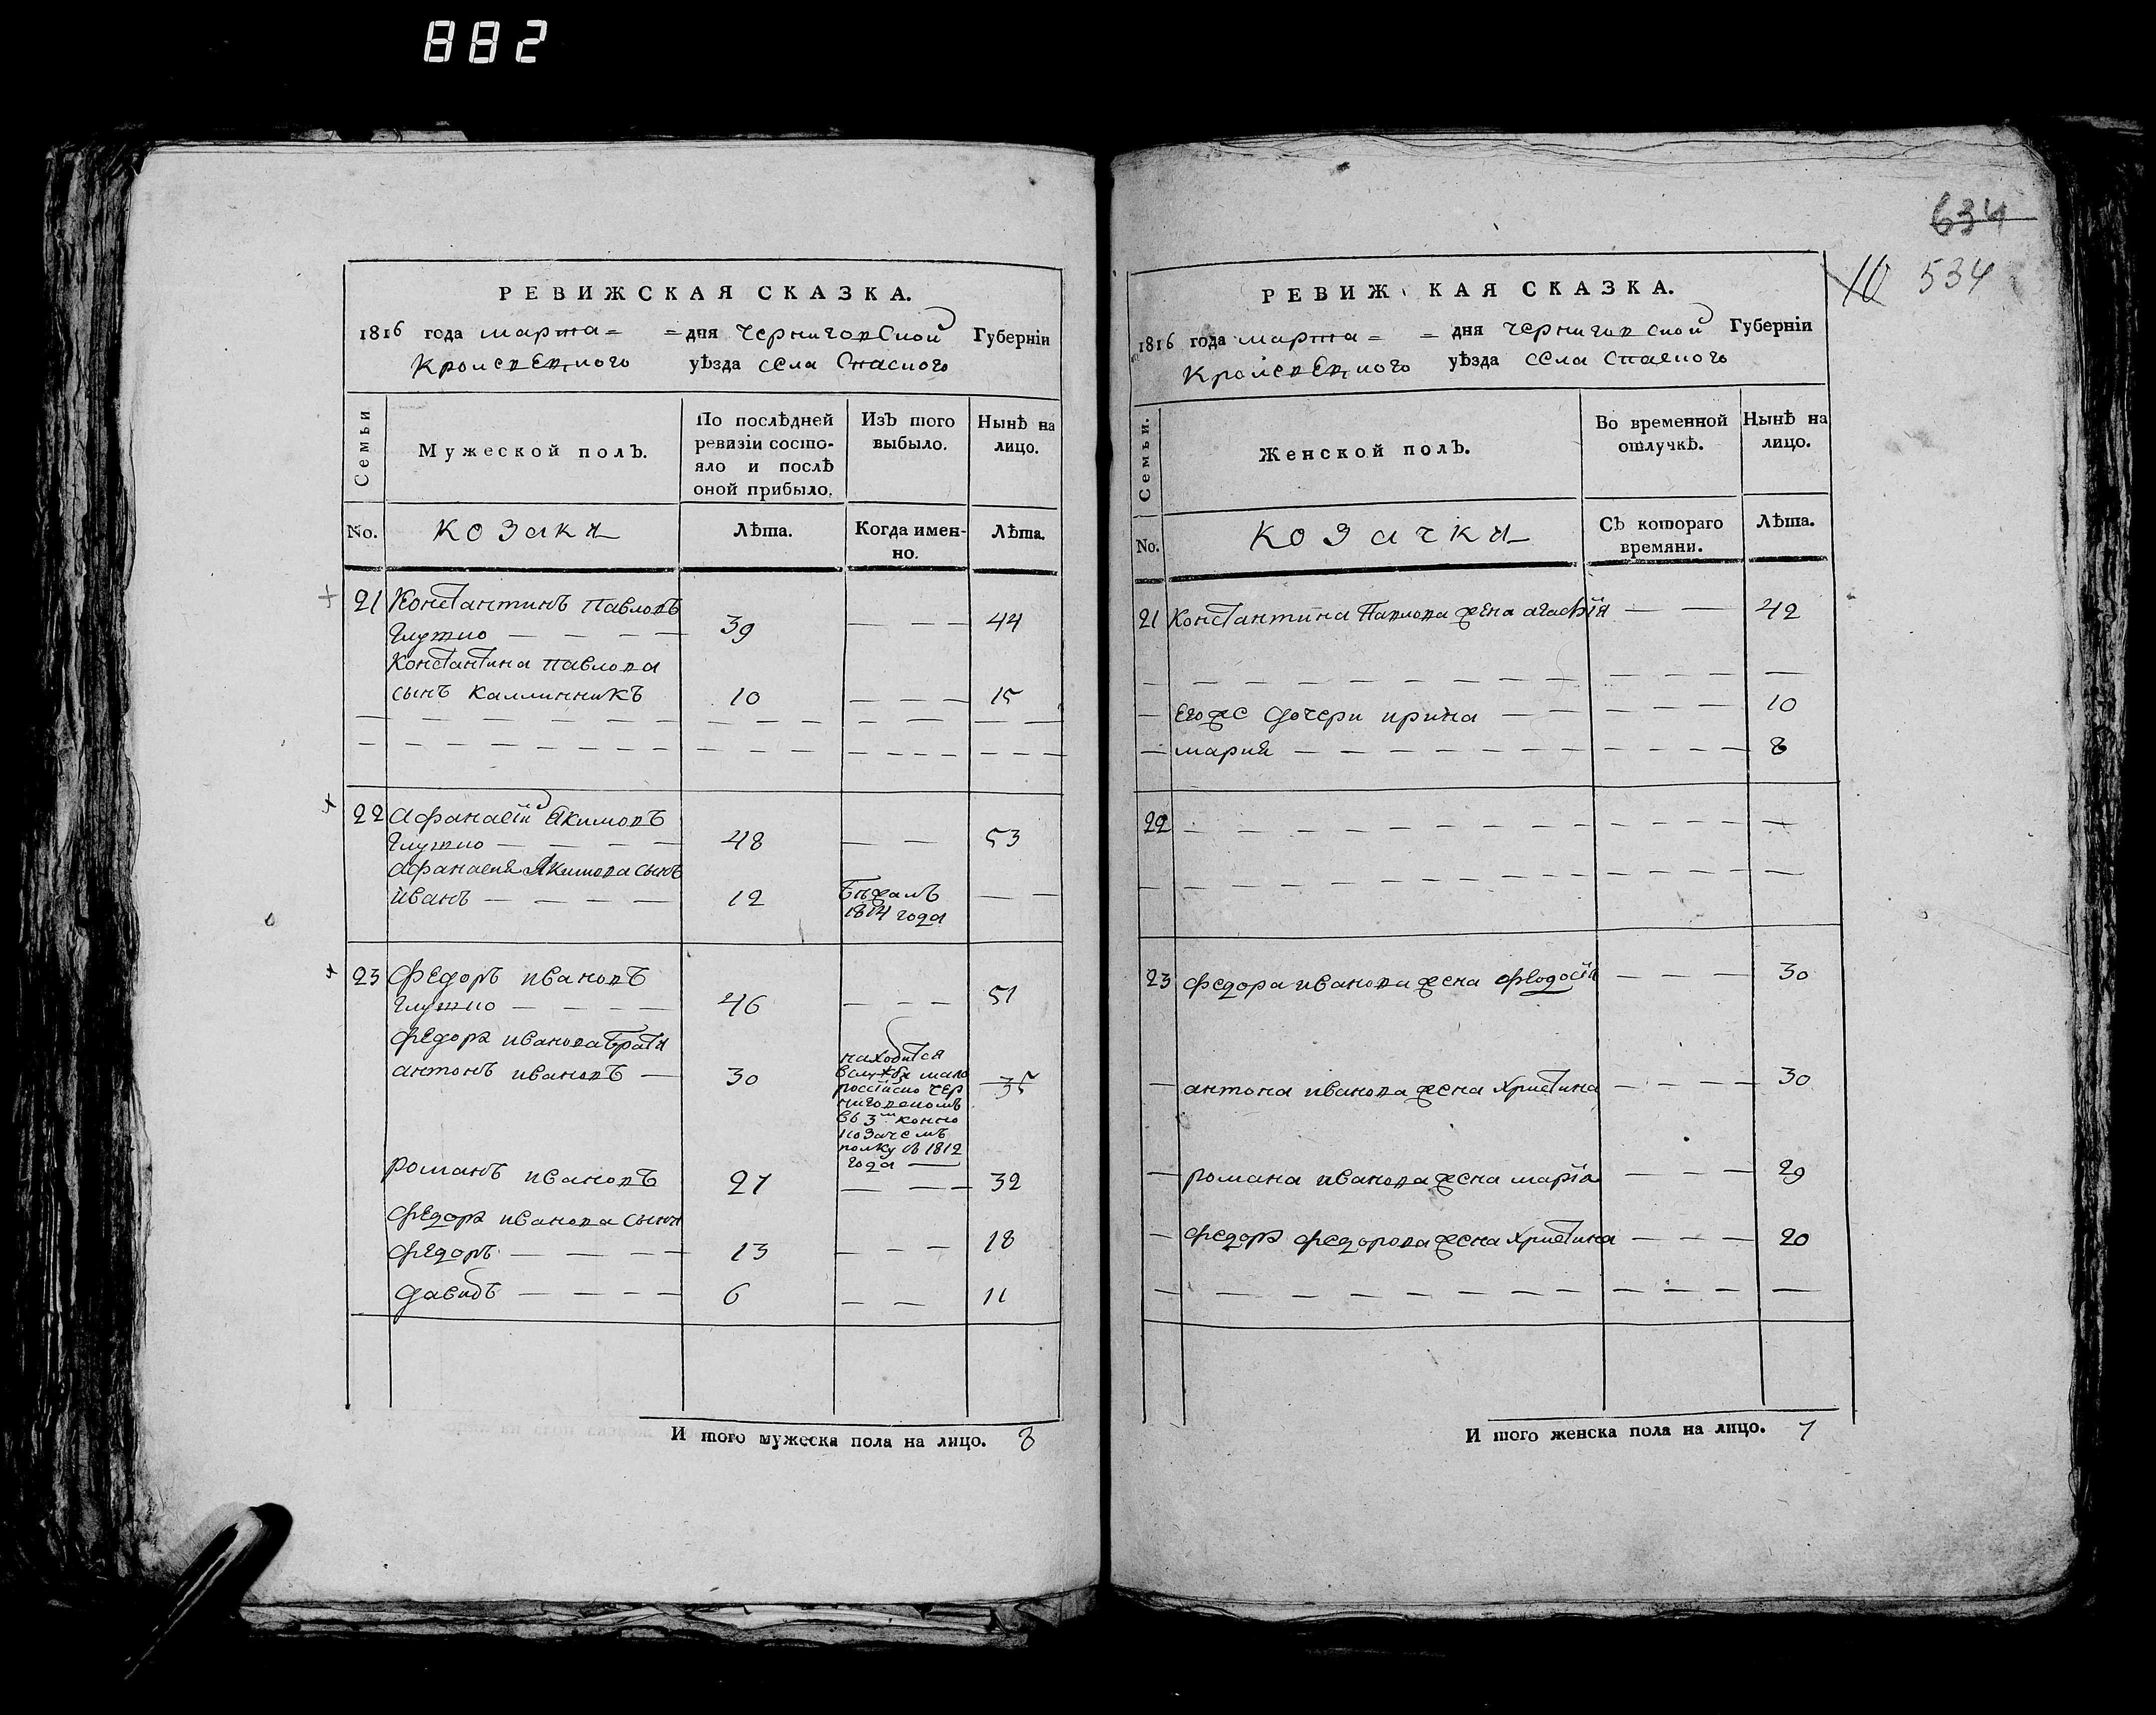 882
РЕВИЖСКАЯ СКАЗКА.
1816 года марта = = дня Черниговской Губерніи
Кролевецкого уѣзда села Спаского
Семьи
Мужеской полъ.
По послѣдней
ревизіи состо-
яло и послѣ
оной прибыло.
Изъ того
выбыло.
Нынѣ на
лицо.
No. козаки Лѣта. Когда имен-
но.
Лѣта.
21 Константинъ Павловъ
39 — — — 44
Константина Павлова
сынъ Каллинникъ 10 — — — 15
22 Афанасій Якимовъ
48 — — 53
Афанасия Якимова сынъ
Иванъ — — — — 12 Бѣжалъ
1814 года
— —
23 Федоръ Ивановъ
46 — — — 51
Федора Иванова братя
Антонъ Ивановъ — 30
находится
в службѣ мало
россійско чер
ниговскомъ
въ 3м конно
козачемъ
полку съ 1812
года —
35
Романъ Ивановъ 27 — — — 32
Федора Иванова сыны
Федоръ — — — — 13 — — — 18
Давидъ — — — — 6 — — 11
И того мужеска пола на лицо. 8
634
10 534
РЕВИЖ КАЯ СКАЗКА.
1816 года марта = = дня Черниговской Губерніи
Кролевецкого уѣзда села Спаского
Семьи.
Женской полъ.
Во временной
отлучкѣ.
Нынѣ на
лицо.
No. козачки Съ котораго
времяни.
Лѣта.
21 Константина Павлова жена Агафія — — 42
— Егоже дочери Ирина — — — — — 10
— Мария — — — — — — — — — 8
22 — — — — — — — — — — — — —
23 Федора Иванова жена Феодосія — — — 30
— Антона Иванова жена Христина — — — — 30
— Романа Иванова жена Марія — — — 29
— Федора Федорова жена Христина — — — 20
И того женска пола на лицо. 7